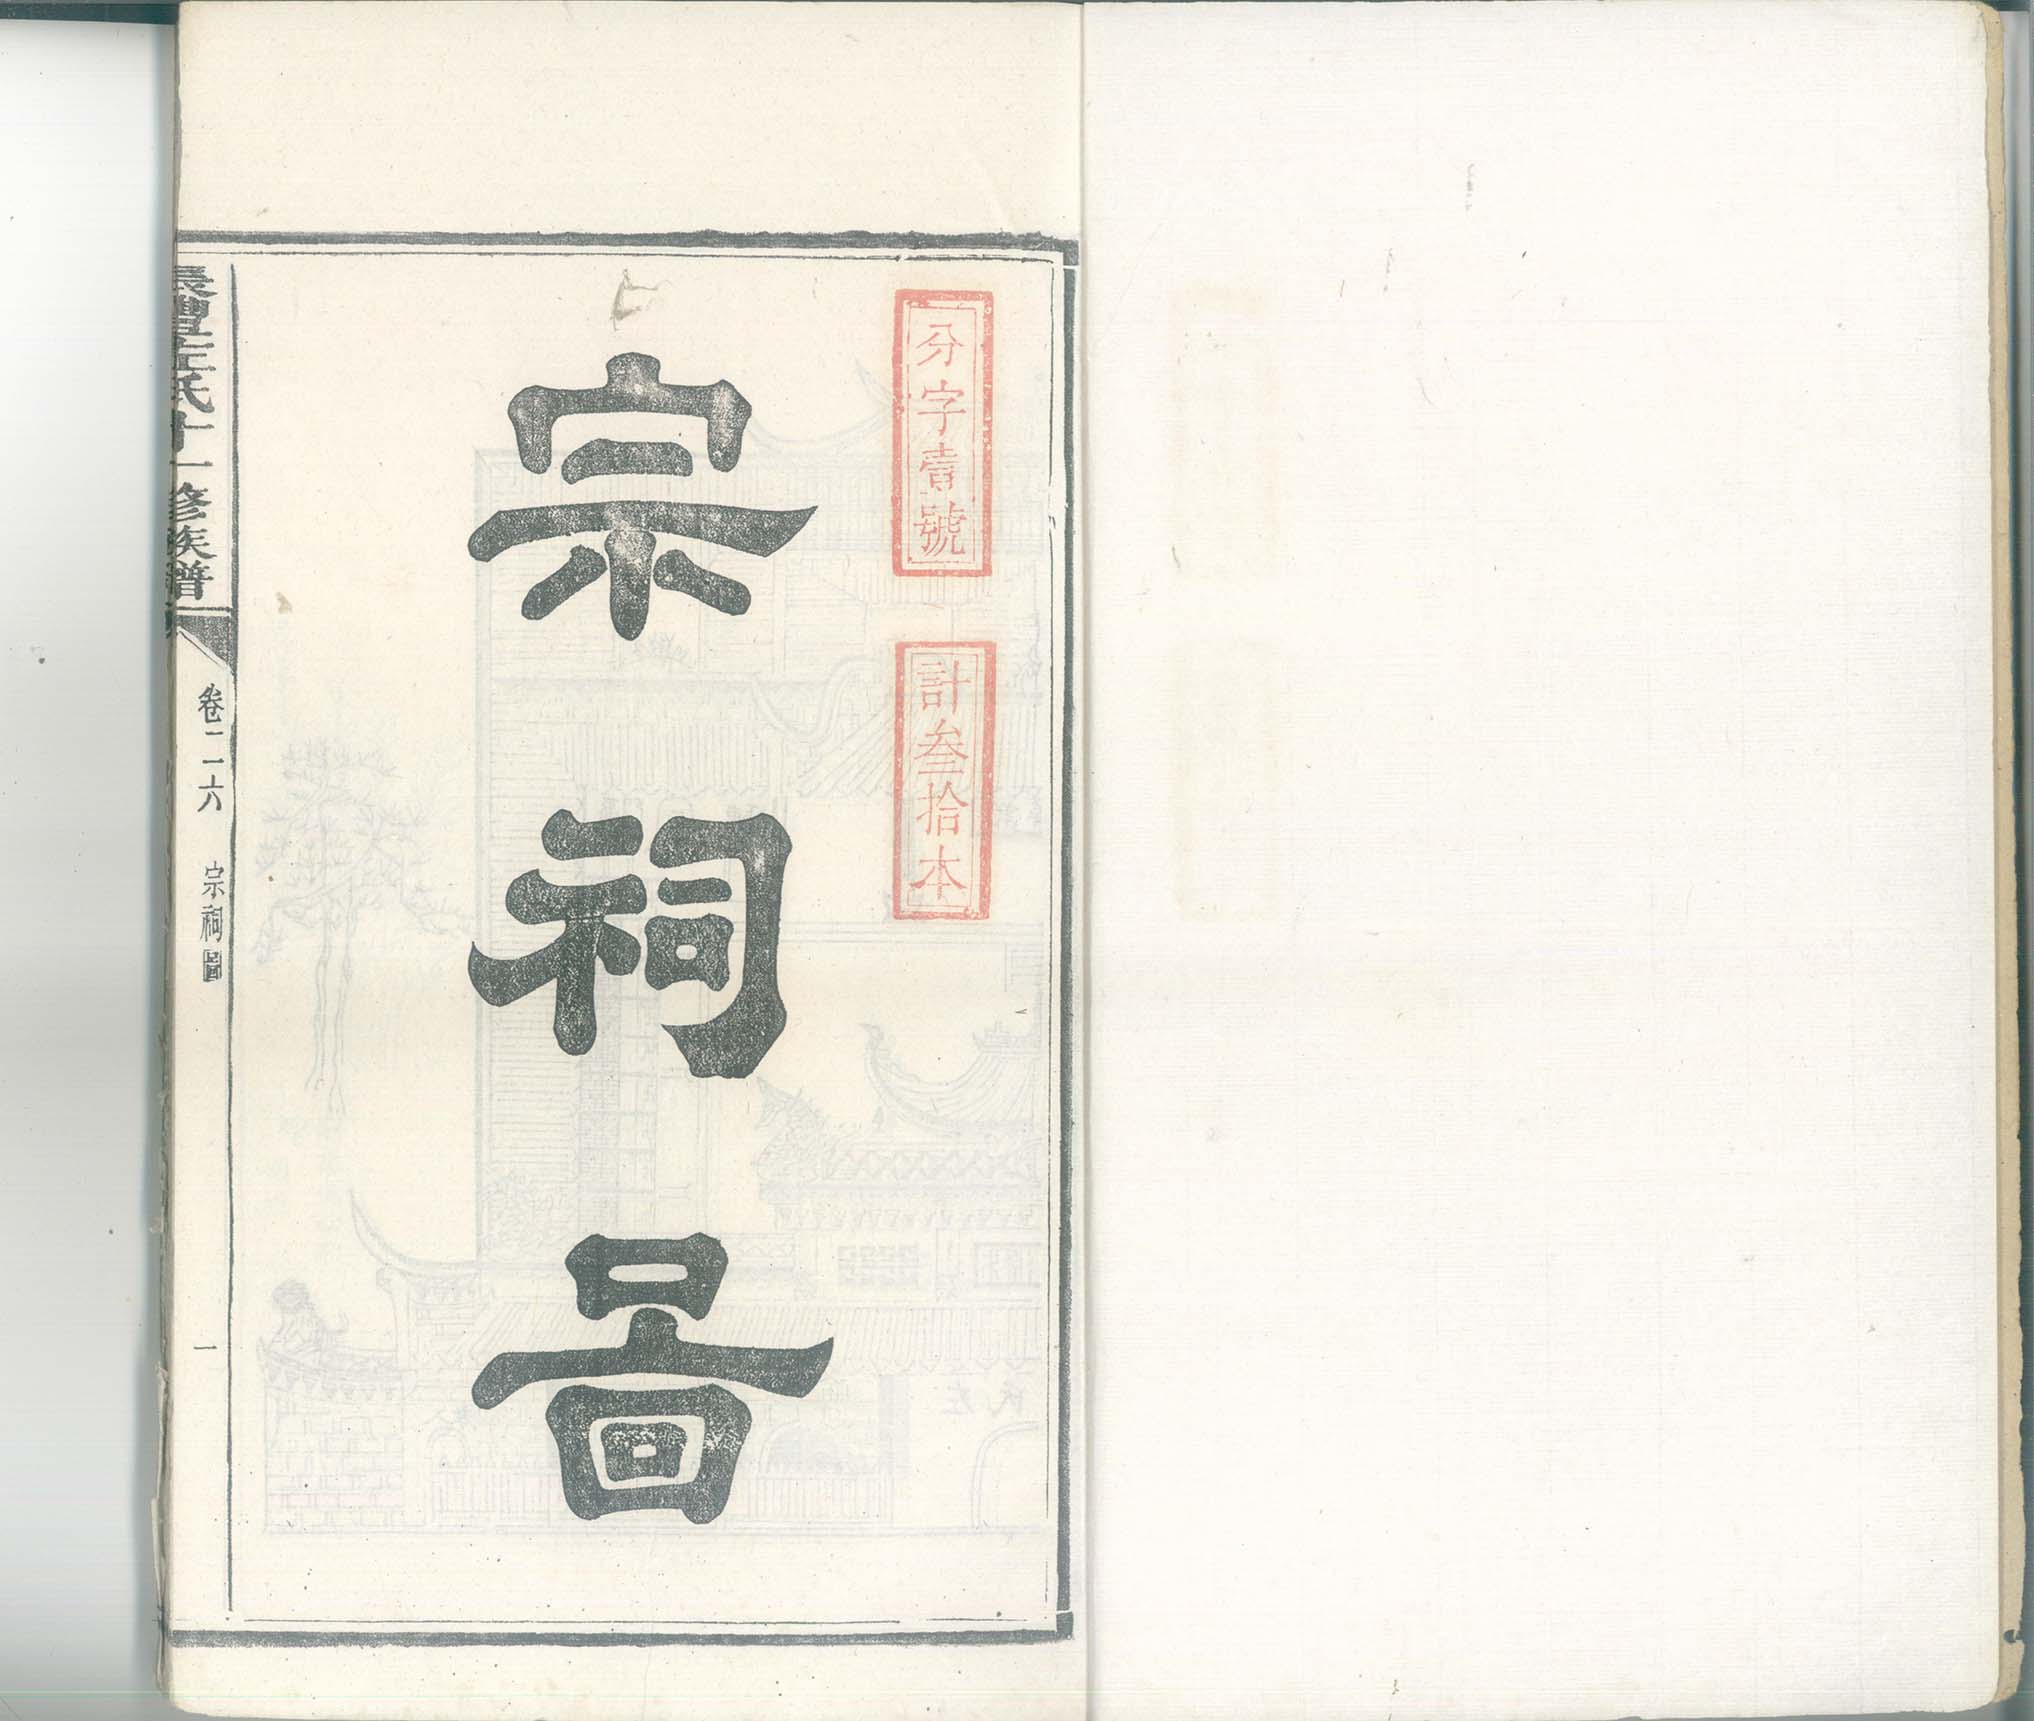 分字壹號
計叁拾本
宗祠啚
氏十一修族譜
卷二六
宗祠圖
一